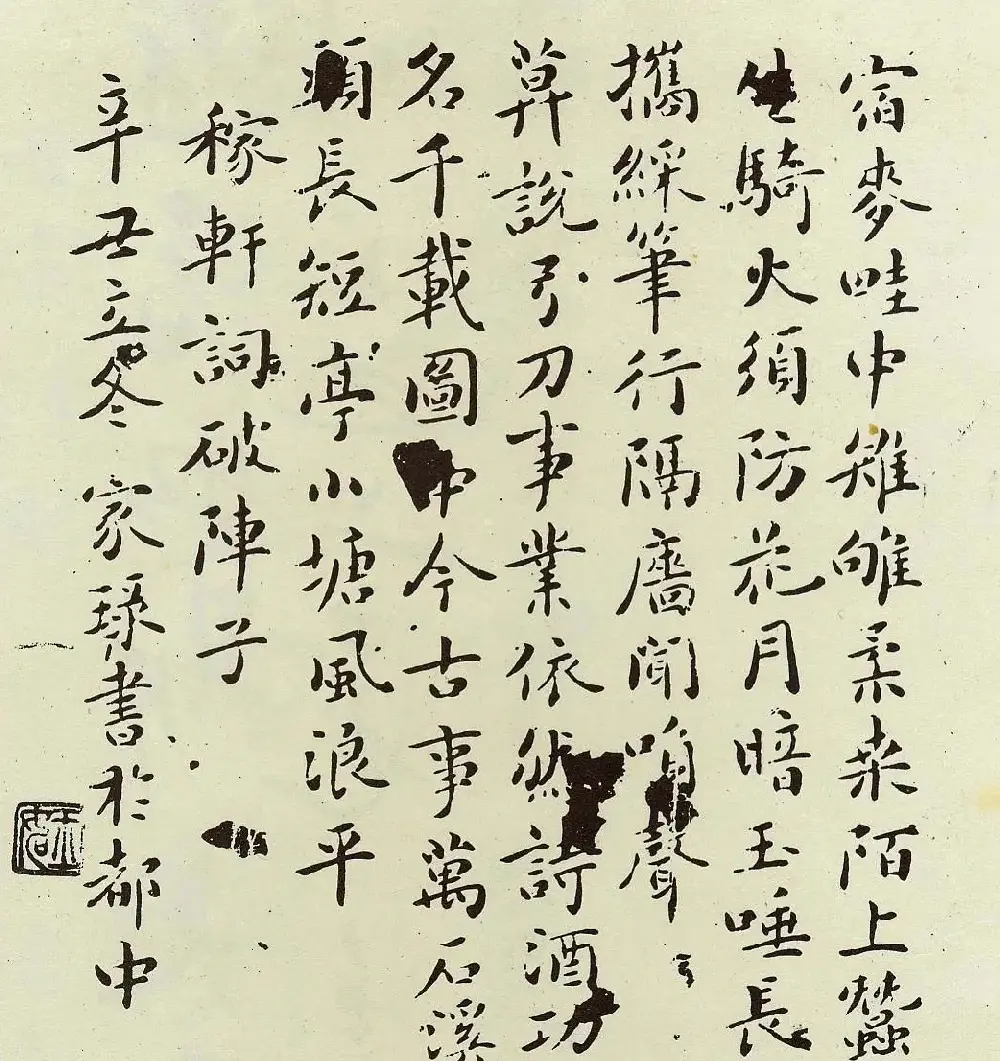 宿麥畦中雉雊柔桑陌上蠶
生騎火須防花月暗玉唾長
攜綵筆行隔牆聞咱聲
莫說弓刀事業依然詩酒功
名千載圖中今古事萬石溪
頭長短亭小塘風浪平
稼軒詞破陣子
辛丑立冬 家琭書於都中